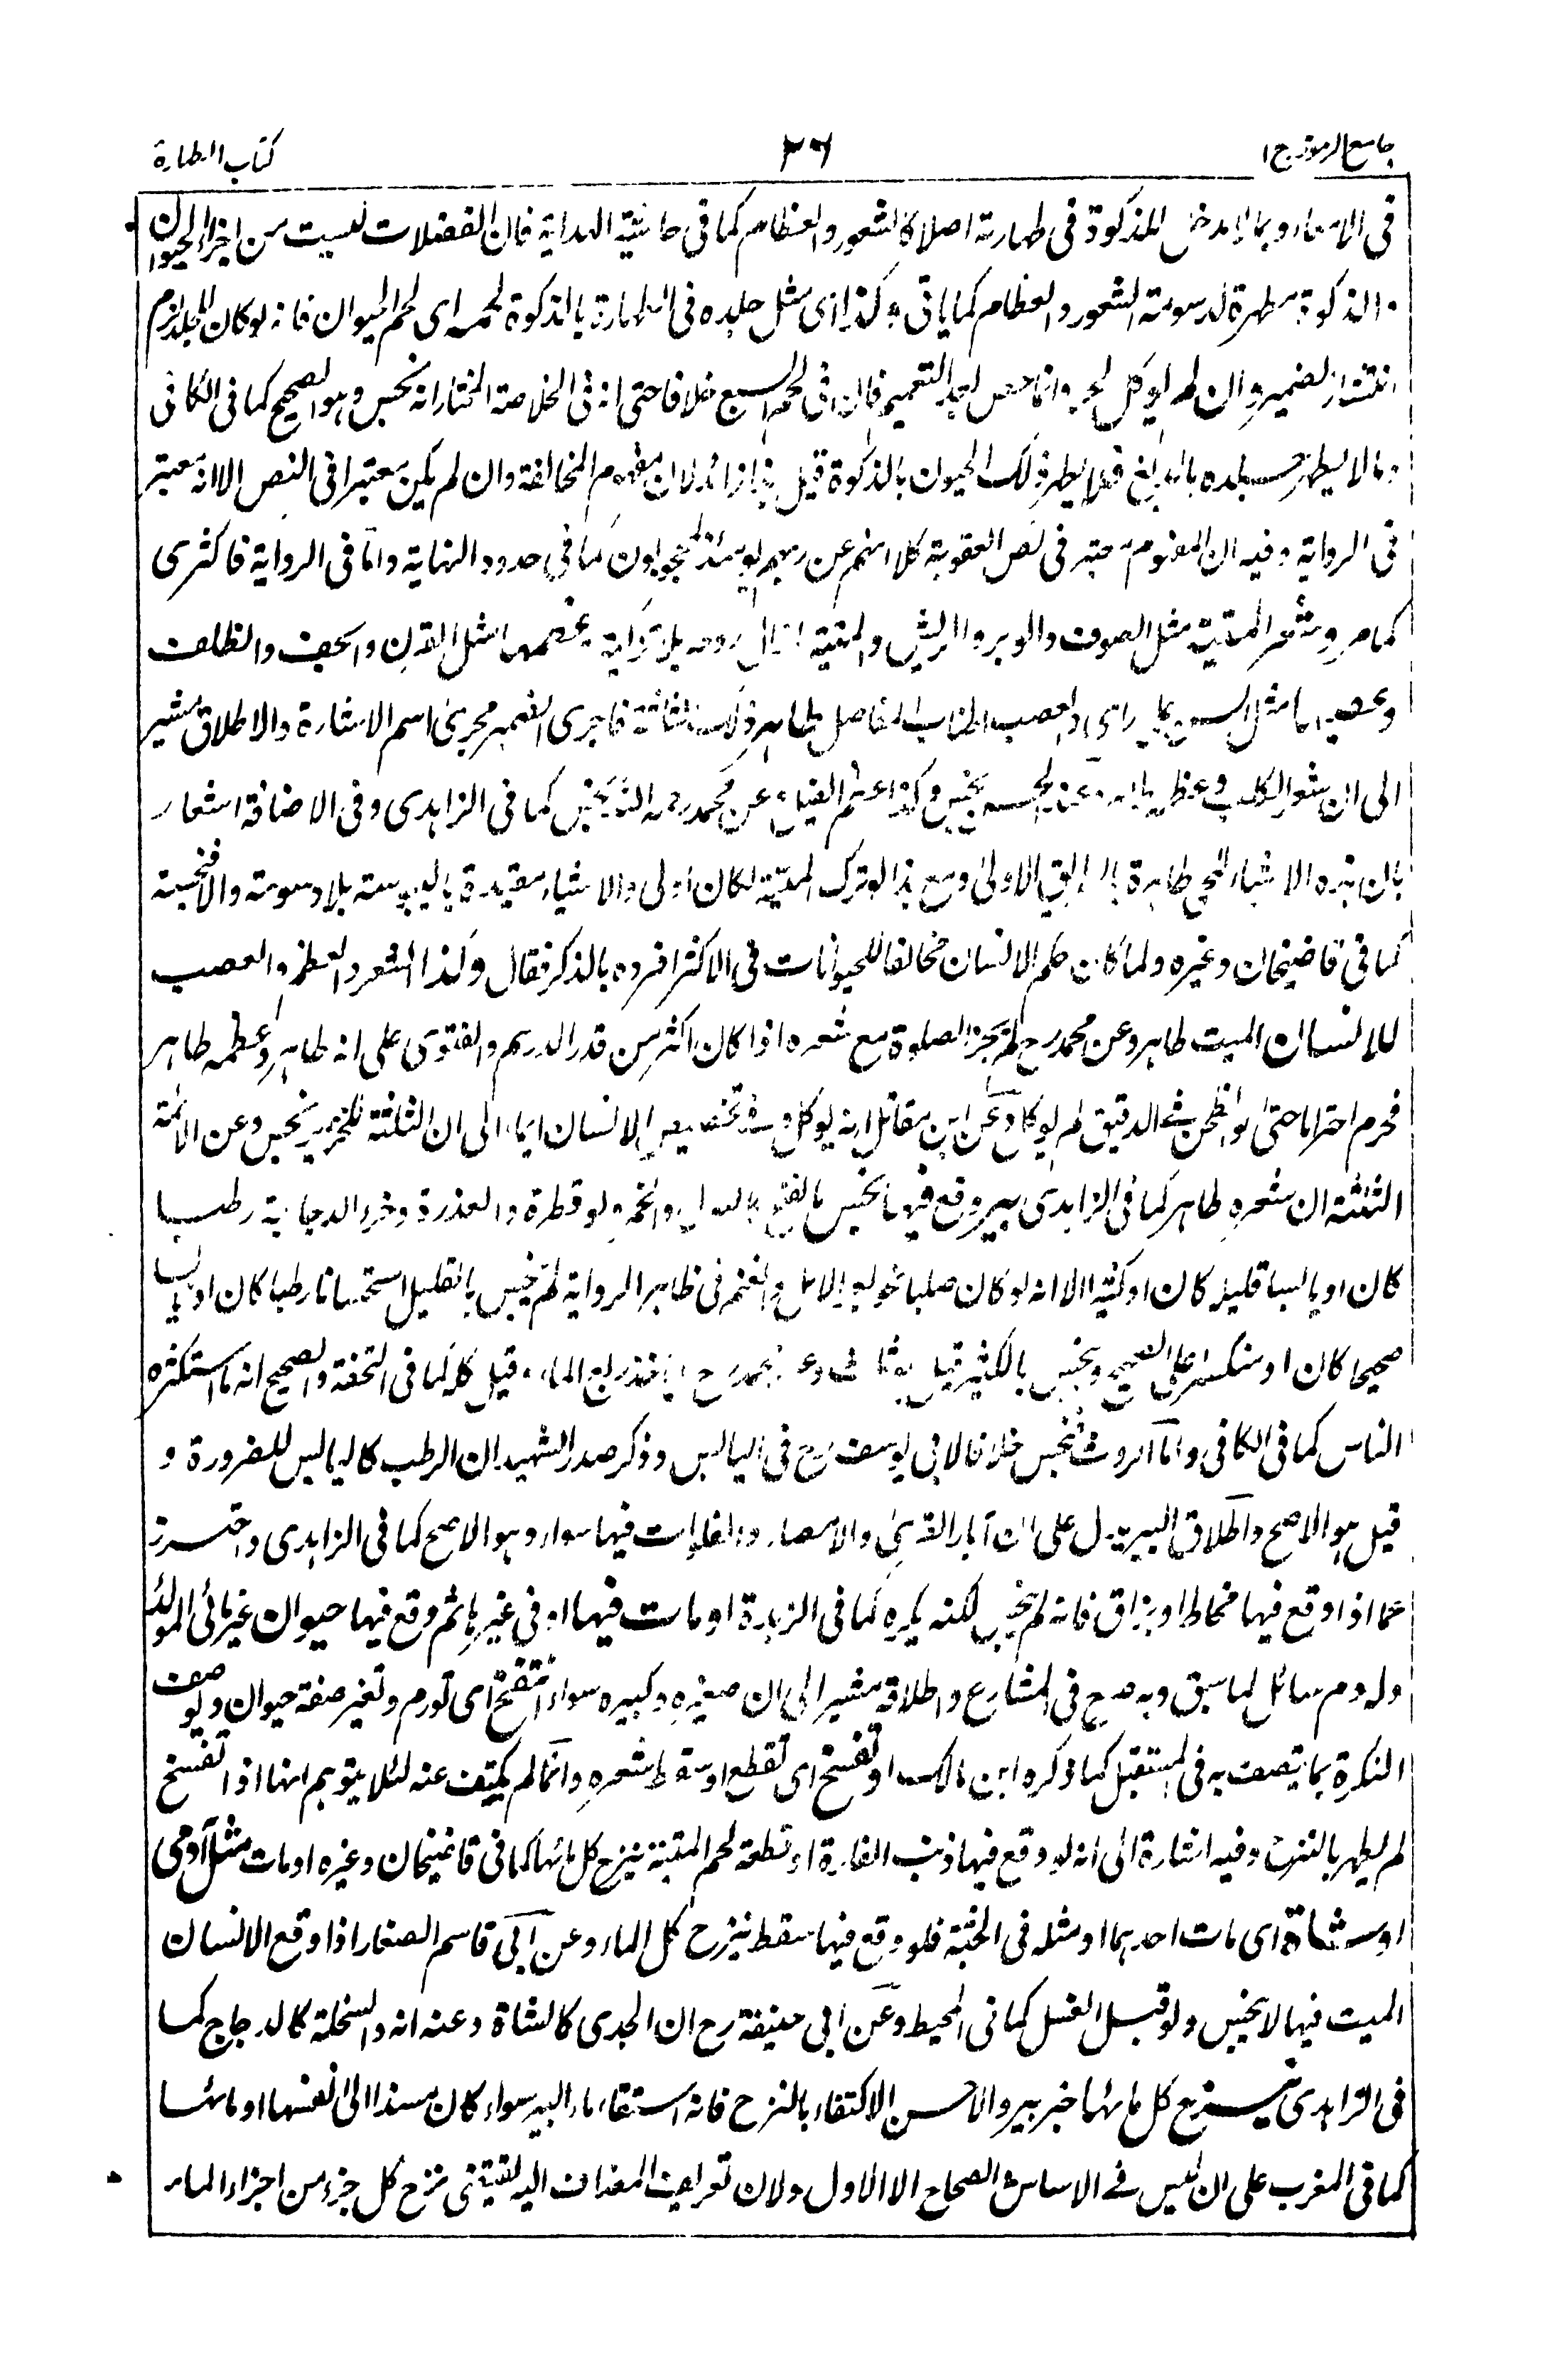 جامع الرموز ج ١
٣٦
كتاب الطهارة
فى الامعاء وبما لا يدخل المذكوة فى طهارته اصلا كالشعور والعظام كما فى حاشية الهداية فان الفضلات ليست من اجزاء الحيوان
والذكوة مطهرة لدسومته الشعور والعظام كما ياتى وكذا اى مثل جلده فى الطهارة بالذكوة لحمه اى لحم الحيوان فانه لو كان للجلد لزم
انتشار الضمير وان لم يوكل لحمه وانما خص لحمه بعد التعميم فان فى لحم السبع خلافا حتى انه فى الخلاصة المختار انه نجس وهو الصحيح كما فى الكافى
وما لا يطهر جلده بالدباغ فلا يطهر ذلك الحيوان بالذكوة قيل هذا زائد لان مفهوم المخالفة وان لم يكن معتبرا فى النص الا انه معتبر
فى الرواية وفيه ان المفهوم معتبر فى نص العقوبة كلا انهم عن ربهم يومئذ لمحجوبون كما فى حدود النهاية واما فى الرواية فاكثرى
كما مر وشعر الميتة مثل الصوف والوبر والريش والميتة ما زال روحه بلا تذكية وعظمها مثل القرن والخف والظلف
وعصبها والعصب اطناب المفاصل طاهر ذلك الثلثة فاجرى الضمير مجرى اسم الاشارة والاطلاق مشير
الى ان شعر الكلب وعظمه نجس وكذا عظم الفيل وعن محمد رحمه الله نجس كما فى الزاهدى وفى الاضافة اشعار
بان هذه الاشياء للحى طاهرة بالطريق الاولى ومع هذا لو ترك الميتة لكان اولى والاشياء مقيدة باليبوسة بلا دسومة والا فنجسة
كما فى قاضيخان وغيره ولما كان حكم الانسان مخالفا للحيوانات فى الاكثر افرده بالذكر فقال وكذا الشعر والعظم والعصب
للانسان الميت طاهر وعن محمد رح لم يجز الصلوة مع شعره اذا كان اكثر من قدر الدرهم والفتوى على انه طاهر وعظمه طاهر
فحرم احتراما حتى لو طحن فى الدقيق لم يوكل وعن ابن مقاتل انه يوكل وفى تخصيص الانسان ايماء الى ان الثلثة للخنزير نجس وعن الائمة
الثلثة ان شعره طاهر كما فى الزاهدى بير وقع فيها نجس بالفتح كالبول والخمر ولو قطرة والعذرة وخرء الدجاجة رطبا
كان او يابسا قليلا كان او كثيرا الا انه لو كان صلبا نحو بعر الابل والغنم فى ظاهر الرواية لم ينجس بالقليل استحسانا رطبا كان او يابسا
صحيحا كان او منكسرا على الصحيح وينجس بالكثير قيل هو ثلث وعن محمد رح ان ياخذ ربع الماء وقيل كله كما فى التحفة والصحيح انه ما استكثره
الناس كما فى الكافى واما الروث فنجس خلافا لابى يوسف رح فى اليابس وذكر صدر الشهيد ان الرطب كاليابس للضرورة و
قيل هو الاصح واطلاق البير يدل على ان آبار القرى والامصار والفلوات فيها سواء وهو الاصح كما فى الزاهدى واحترز
عما اذا وقع فيها مخاط او بزاق فانه لم ينجس لكنه يكره كما فى الزبدة او مات فيها او فى غيرها ثم وقع فيها حيوان غير مائى المولد
وله دم سائل لما سبق وبه صرح فى المشارع واطلاقه مشير الى ان صغيره وكبيره سواء انتفخ اى تورم وتغير صفة حيوان ويوصف
النكرة بما يتصف به فى المستقبل كما ذكره ابن مالك او تفسخ اى تقطع او سقط شعره وانما لم يكتف عنه لئلا يتوهم انها اذا تفسخ
لم يطهر بالنزح وفيه اشارة الى انه لو وقع فيها ذنب الفارة او قطعة لحم الميتة ينزح كل مائها كما فى قاضيخان وغيره او مات مثل آدمى
او شاة اى مات احدهما او مثله فى الجثة فلو وقع فيها سقط ينزح كل الماء وعن ابى قاسم الصفار اذا وقع الانسان
الميت فيها لا ينجس ولو قبل الغسل كما فى المحيط وعن ابى حنيفة رح ان الجدى كالشاة وعنه انه والسخلة كالدجاج كما
فى الزاهدى ينزح كل مائها خبر بير والاحسن الاكتفاء بالنزح فانه استقاء ماء البير سواء كان مسندا الى نفسها او مائها
كما فى المغرب على ان ليس فى الاساس والصحاح الا الاول ولان تعريف المضاف اليه يقتضى نزح كل جزء من اجزاء الماء